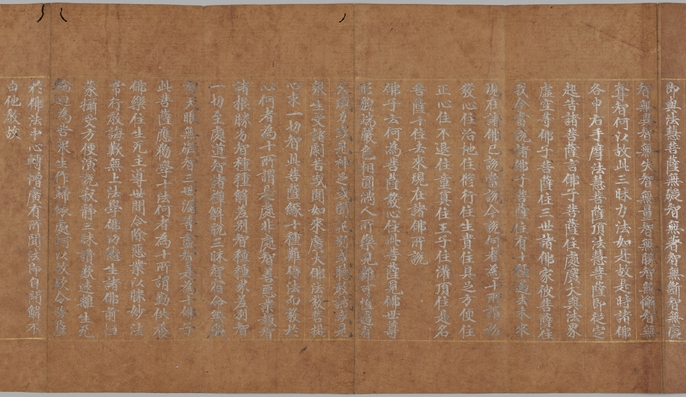 即與法慧菩薩無礙智無著智無斷智無癡
智無異智無失智無量智無勝智無懈智無
奪智何以故此三昧力法如是故是時諸佛
各申右手摩法慧菩薩頂法慧菩薩即從定
起告諸菩薩言佛子菩薩住處廣大與法界
虛空等佛子菩薩住三世諸佛家彼菩薩住
我今當說諸佛子菩薩住有十種過去未來
現在諸佛已說當說今說何者為十所謂初
發心住治地住修行住生貴住具足方便住
正心住不退住童真住王子住灌頂住是名
菩薩十住去來現在諸佛所說
佛子云何為菩薩發心住此菩薩見佛世尊
形貌端嚴色相圓滿人所樂見難可值遇有
大威力或見神足或聞記別或聽教誡或見
眾生受諸劇苦或聞如來廣大佛法發菩提
心求一切智此菩薩緣十種難得法而發於
心何者為十所謂是處非處智善惡業報智
諸根勝劣智種種解差別智種種界差別智
一切至處道智諸禪解脫三昧智宿命無礙
智天眼無礙智三世漏普盡智是為十佛子
此菩薩應勸學十法何者為十所謂勤供養
佛樂住生死主導世間令除惡業以勝妙法
常行教誨歎無上法學佛功德生諸佛前恒
蒙攝受方便演說寂靜三昧讚歎遠離生死
輪迴為苦眾生作歸依處何以故欲令菩薩
於佛法中心轉增廣有所聞法即自開解不
由他教故